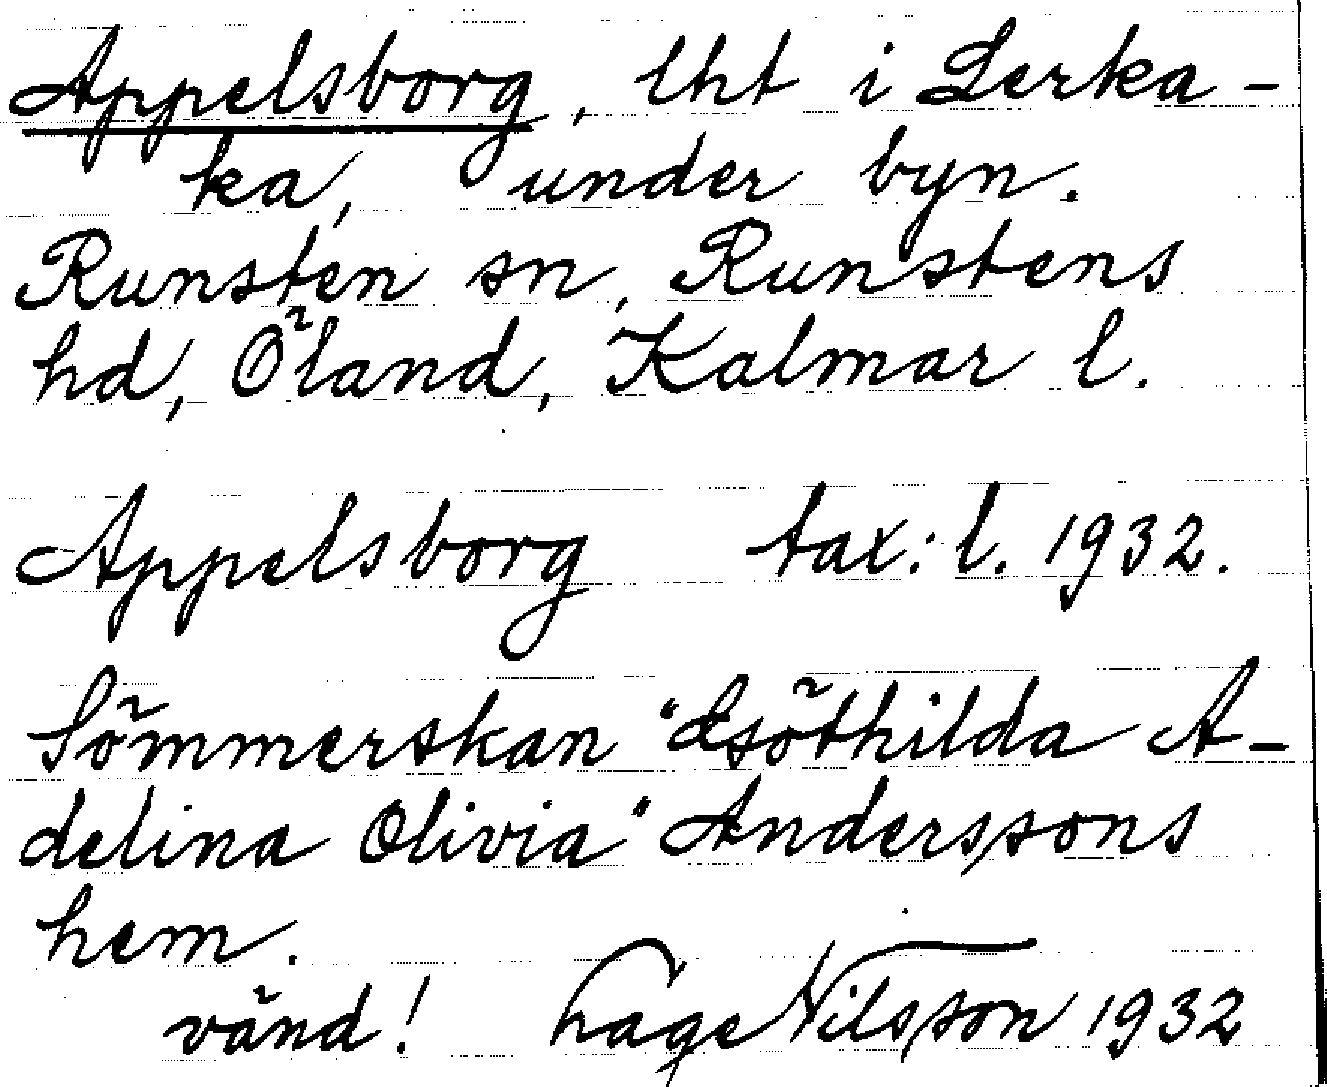 Appelsborg, lht i Lerka-
ka, under byn.
Runsten sn, Runstens
hd, Öland, Kalmar l.
Appelsborg tax: l. 1932.
Sömmerskan "Esöthilda A-
delina Olivia" Anderssons
hem.
vänd! Hage Nilsson 1932